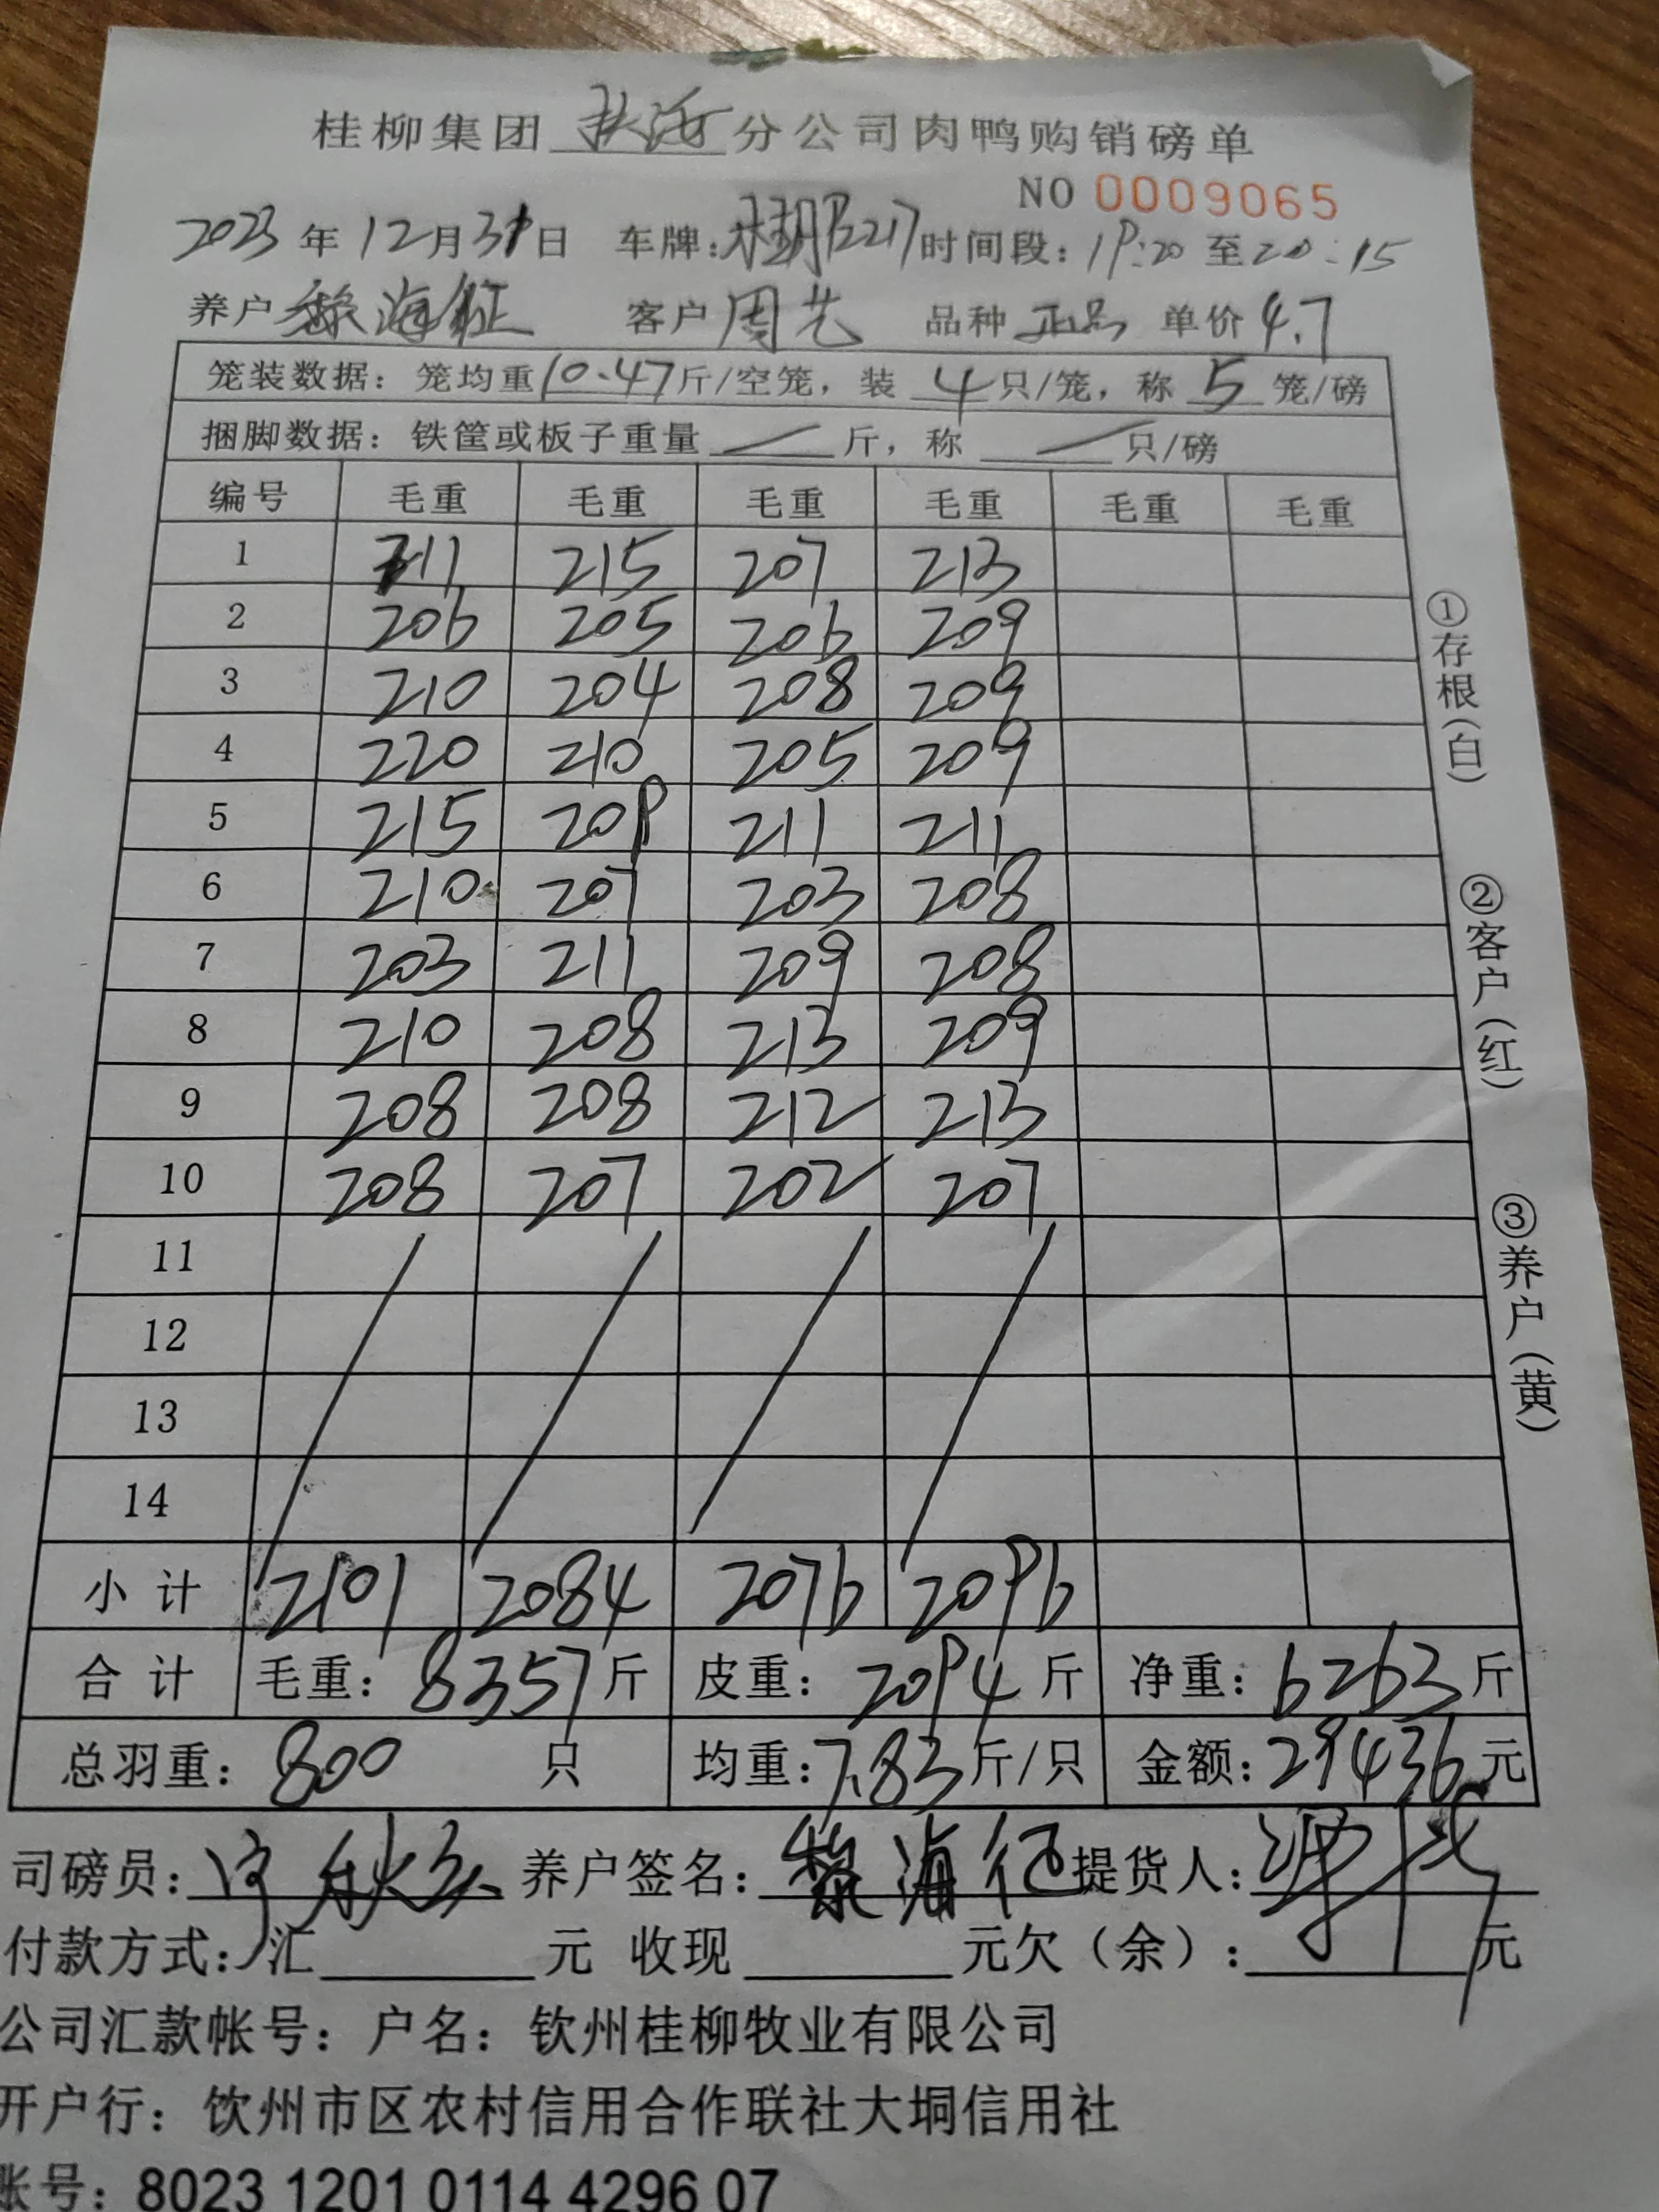 桂柳集团 分公司肉鸭购销磅单
NO 0009065
2023年12月31日 车牌: 时间段:19:20至20:15
养户黎海征 客户周艺 品种正品 单价4.7
笼装数据:笼均重10.47斤/空笼,装4只/笼,称5笼/磅
捆脚数据:铁筐或板子重量 / 斤,称 / 只/磅
编号 毛重 毛重 毛重 毛重 毛重 毛重
1 211 215 207 213
2 206 205 206 209
3 210 204 208 209
4 220 210 205 209
5 215 209 211 211
6 210 207 203 208
7 203 211 209 208
8 210 208 213 209
9 208 208 212 213
10 208 207 202 207
11
12
13
14
小计 2101 2084 2076 2096
合计 毛重:8357斤 皮重:2094斤 净重:6263斤
总羽重:800只 均重:7.83斤/只 金额:29436元
司磅员: 养户签名:黎海征 提货人:
付款方式:汇 元 收现 元欠(余): 元
公司汇款帐号:户名:钦州桂柳牧业有限公司
开户行:饮州市区农村信用合作联社大垌信用社
账号:8023 1201 0114 4296 07
①存根(白)
②客户(红)
③养户(黄)